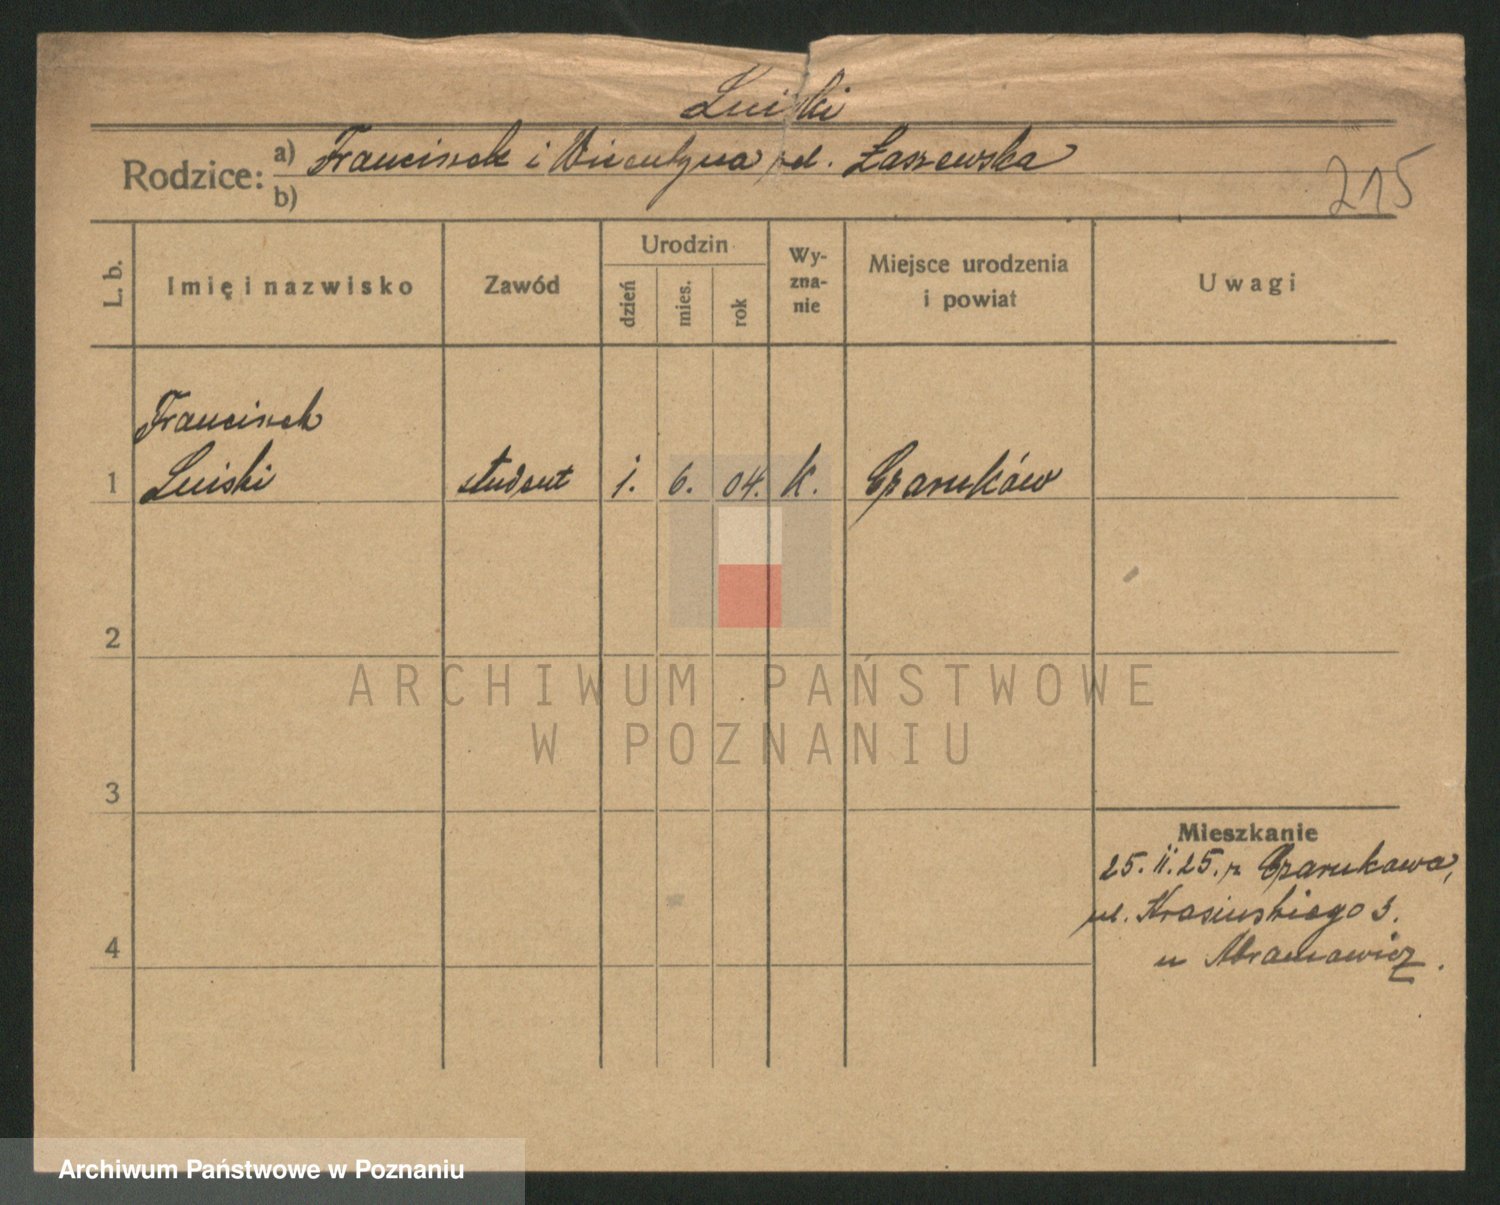 Luiski
Rodzice: a) Franciszek i Wicentyna zd. Łaszewska
b)
215
L. b. Imię i nazwisko Zawód Urodzin dzień mies. rok Wyznanie Miejsce urodzenia i powiat Uwagi
Franciszek
1 Luiski student 1. 6. 04. k. Czarnków
2
3
4
Mieszkanie
25.II.25. z Czarnkowa,
ul. Krasińskiego 3.
u Abramowicz.
ARCHIWUM PAŃSTWOWE
W POZNANIU
Archiwum Państwowe w Poznaniu